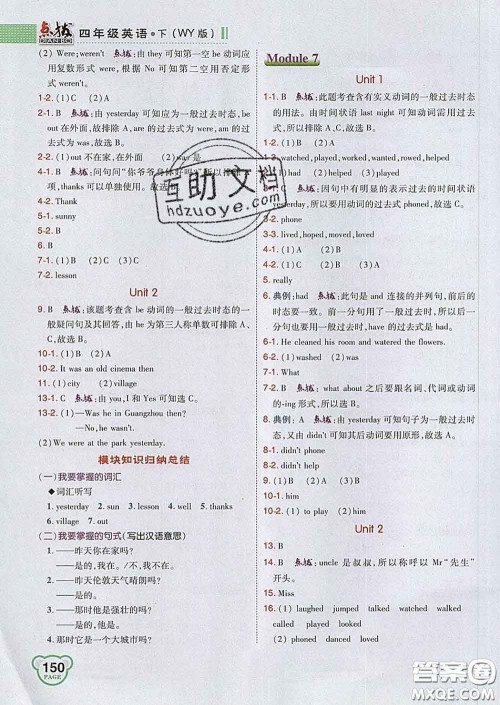 点拨 四年级英语·下(WY版)
DIAN BO
(2) Were; weren't 点拨:由 they 可知第一空 be 动词应
用复数形式 were, 根据 No 可知第二空用否定形
式 weren't.
1-2. (1)C (2)C
2-1. B 点拨:由 yesterday 可知应为一般过去时态,be
out 在外面,故排除 A,are 的过去式为 were,am 的过
去式为 was,故选 B.
2-2. (1)out 不在家,在外面 (2)was 是
项,thanks 可以单独使用。故选 C.
4-2. Thank
5-1. sunny
6. B
7-1. (1)B (2)C (3)C
7-2. lesson
Unit 2
9. B 点拨:该题考查含 be 动词的一般过去时态的一
般疑问句及其回答,由 he 为第三人称单数可排除 A、
C,故选 B.
10-1. (1)B (2)A
10-2. It was an old cinema then
11. (1)city (2)village
13-1. C 点拨:由 you, I 和 Yes 可知选 C.
13-2. (1)—Was he in Guangzhou then?
—No, he wasn't.
(2)We were at the park yesterday.
模块知识归纳总结
(一)我要掌握的词汇
◆词汇听写
1. yesterday 2. sun 3. lesson 4. well 5. thanks
6. village 7. out
(二)我要掌握的句式(写出汉语意思)
1. ——昨天你在家吗?
——是的,我在。/不,我不在。
2. ——昨天伦敦天气晴朗吗?
——是的。
3. ——那时他是强壮的吗?
——是的,他是。
4. 那时它是一个大城市了吗?
150
PAGE
Module 7
Unit 1
1-1. B 点拨:此题考查含有实义动词的一般过去时态
的用法。由时间状语 last night 可知动词需用过去
式,所以排除 A、C,故选 B.
1-2. watched, played, worked, wanted, helped
2-1. (1)A (2)B
C 点拨:因句中有明显的表示过去的时间状语
yesterday,所以要用动词的过去式 phoned,故选 C.
3-2. phone
3-3. lived, hoped, moved, loved
4-1. (1)had (2)had
4-2. (1)B (2)B (3)A
5. really
6. 典例:had 点拨:此句是 and 连接的并列句,前后的
时态要一致。前一分句使用了一般过去时,所以后一
分句也要用一般过去时,have 的过去式是 had.
6-1. He cleaned his room and watered the flowers.
7-1. What
7-2. B 点拨:what about 之后要跟名词、代词或动词
的-ing 形式,所以选 B.
8. 典例:A 点拨:由 yesterday 可知句子为一般过去时
态,又由 didn't 可知其后动词要用原形,故选 A.
8-1. didn't phone
8-2. didn't help
10-1. him
10-2. (1)to play (2)him
Unit 2
13. B
14. B 点拨:uncle 是叔叔,所以称呼以 Mr“先生”
开头。
15. Miss
16. (1)laughed jumped talked watched walked
called played started helped
(2)phoned danced loved
互助文档
hdzuoye.com
答案圈
MXQE.COM